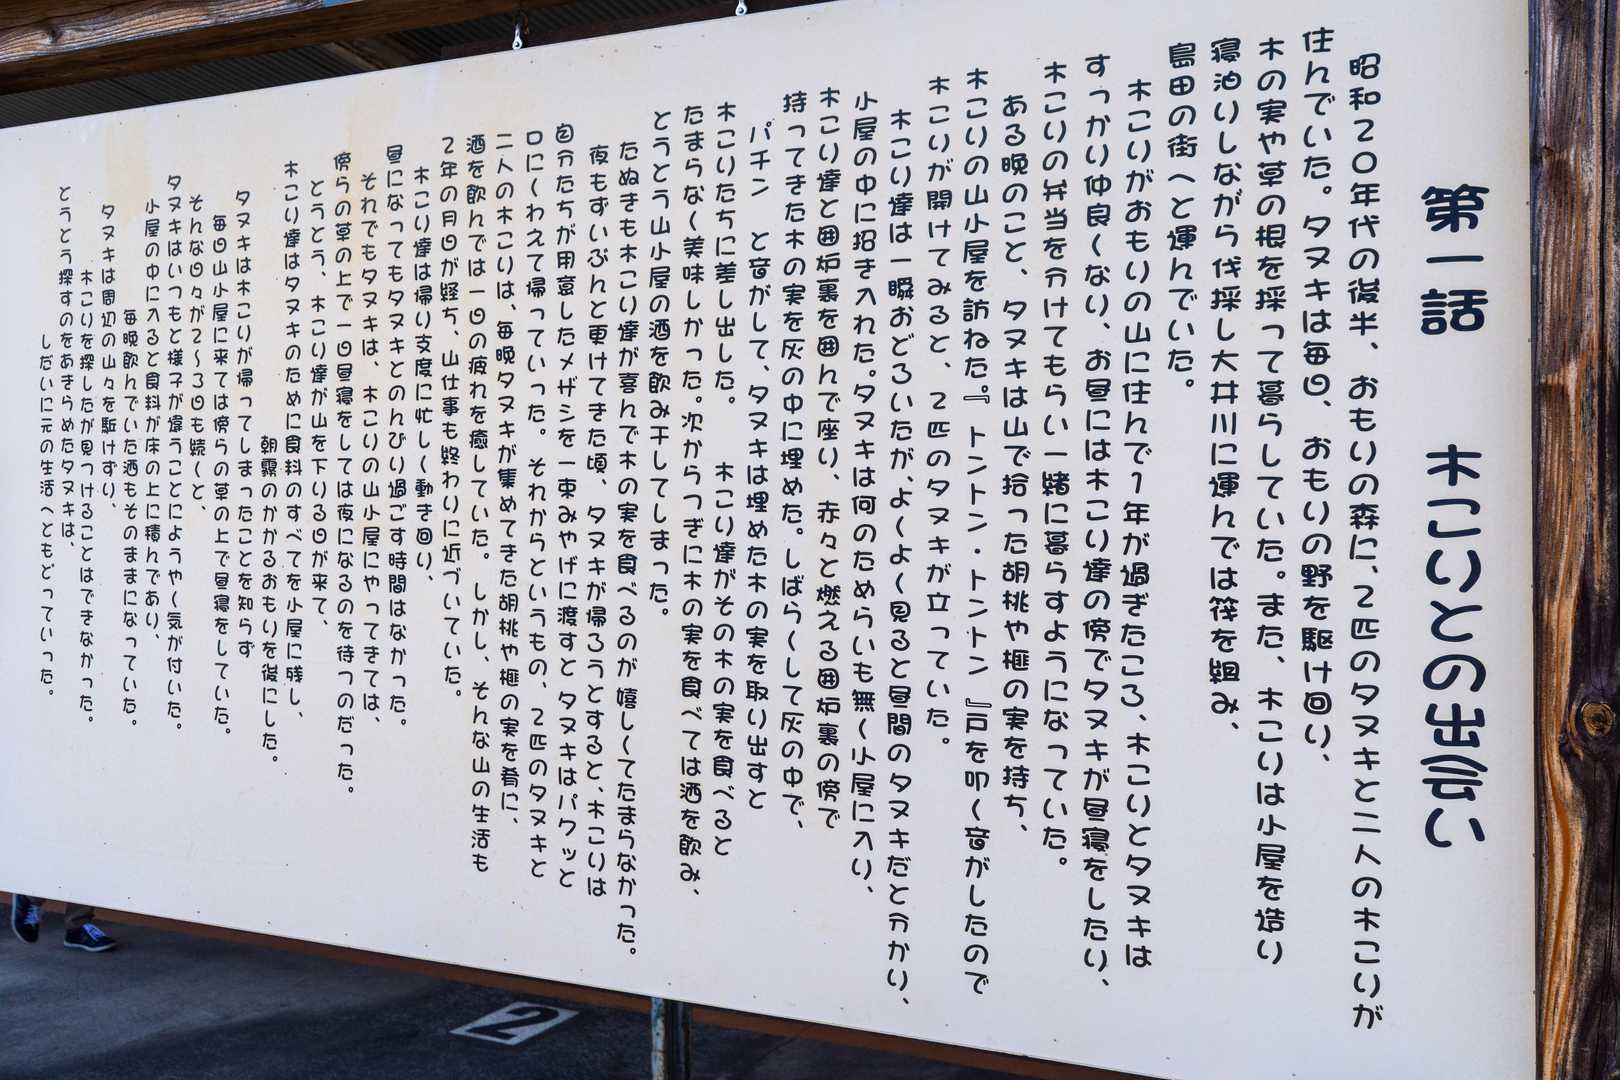 第一話　木こりとの出会い
昭和２０年代の後半、おもりの森に、２匹のタヌキと二人の木こりが
住んでいた。タヌキは毎日、おもりの野を駆け回り、
木の実や草の根を採って暮らしていた。また、木こりは小屋を造り
寝泊りしながら伐採し大井川に運んでは筏を組み、
島田の街へと運んでいた。
木こりがおもりの山に住んで１年が過ぎたころ、木こりとタヌキは
すっかり仲良くない、お昼には木こり達の傍でタヌキが昼寝をしたい、
木こりの弁当を分けてもらい一緒に暮らすようになっていた。
ある晩のこと、タヌキは山で拾った胡桃や榧の実を持ち、
木こりの山小屋を訪ねた。『トントン・トントン』戸を叩く音がしたので
木こりが開けてみると、２匹のタヌキが立っていた。
木こり達は一瞬おどろいたが、よくよく見ると昼間のタヌキだと分かり、
小屋の中に招き入れた。タヌキは何のためらいも無く小屋に入り、
木こり達と囲炉裏を囲んで座り、赤々と燃える囲炉裏の傍で
持ってきた木の実を灰の中に埋めた。しばらくして灰の中で、
パチン　と音がして、タヌキは埋めた木の実を取り出すと
木こりたちに差し出した。　木こり達がその木の実を食べると
たまらなく美味しかった。次からつぎに木の実を食べては酒を飲み、
とうとう山小屋の酒を飲み干してしまった。
たぬきも木こり達が喜んで木の実を食べるのが嬉しくてたまらなかった。
夜もずいぶんと更けてきた頃、タヌキが帰ろうとすると、木こりは
自分たちが用意したメザシを一束みやげに渡すとタヌキはパクッと
口にくわえて帰っていった。それからというもの、２匹のタヌキと
二人の木こりは、毎晩タヌキが集めてきた胡桃や榧の実を肴に、
酒を飲んでは一日の疲れを癒していた。しかし、そんな山の生活も
２年の月日が経ち、山仕事も終わりに近づいていた。
木こり達は帰り支度に忙しく動き回り、
昼になってもタヌキとのんびり過ごす時間はなかった。
それでもタヌキは、木こりの山小屋にやってきては、
傍らの草の上で一日昼寝をしては夜になるのを待つのだった。
とうとう、木こり達が山を下りる日が来て、
木こり達はタヌキのために食料のすべてを小屋に残し、
朝霧のかかるおもりを後にした。
タヌキは木こりが帰ってしまったことを知らず
毎日山小屋に来ては傍らの草の上で昼寝をしていた。
そんな日々が２〜３日も続くと、
タヌキはいつもと様子が違うことにようやく気が付いた。
小屋の中に入ると食料が床の上に積んであり、
毎晩飲んでいた酒もそのままになっていた。
タヌキは周辺の山々を駆けずり、
木こりを探したが見つけることはできなかった。
とうとう探すのをあきらめたタヌキは、
しだいに元の生活へともどっていった。
2